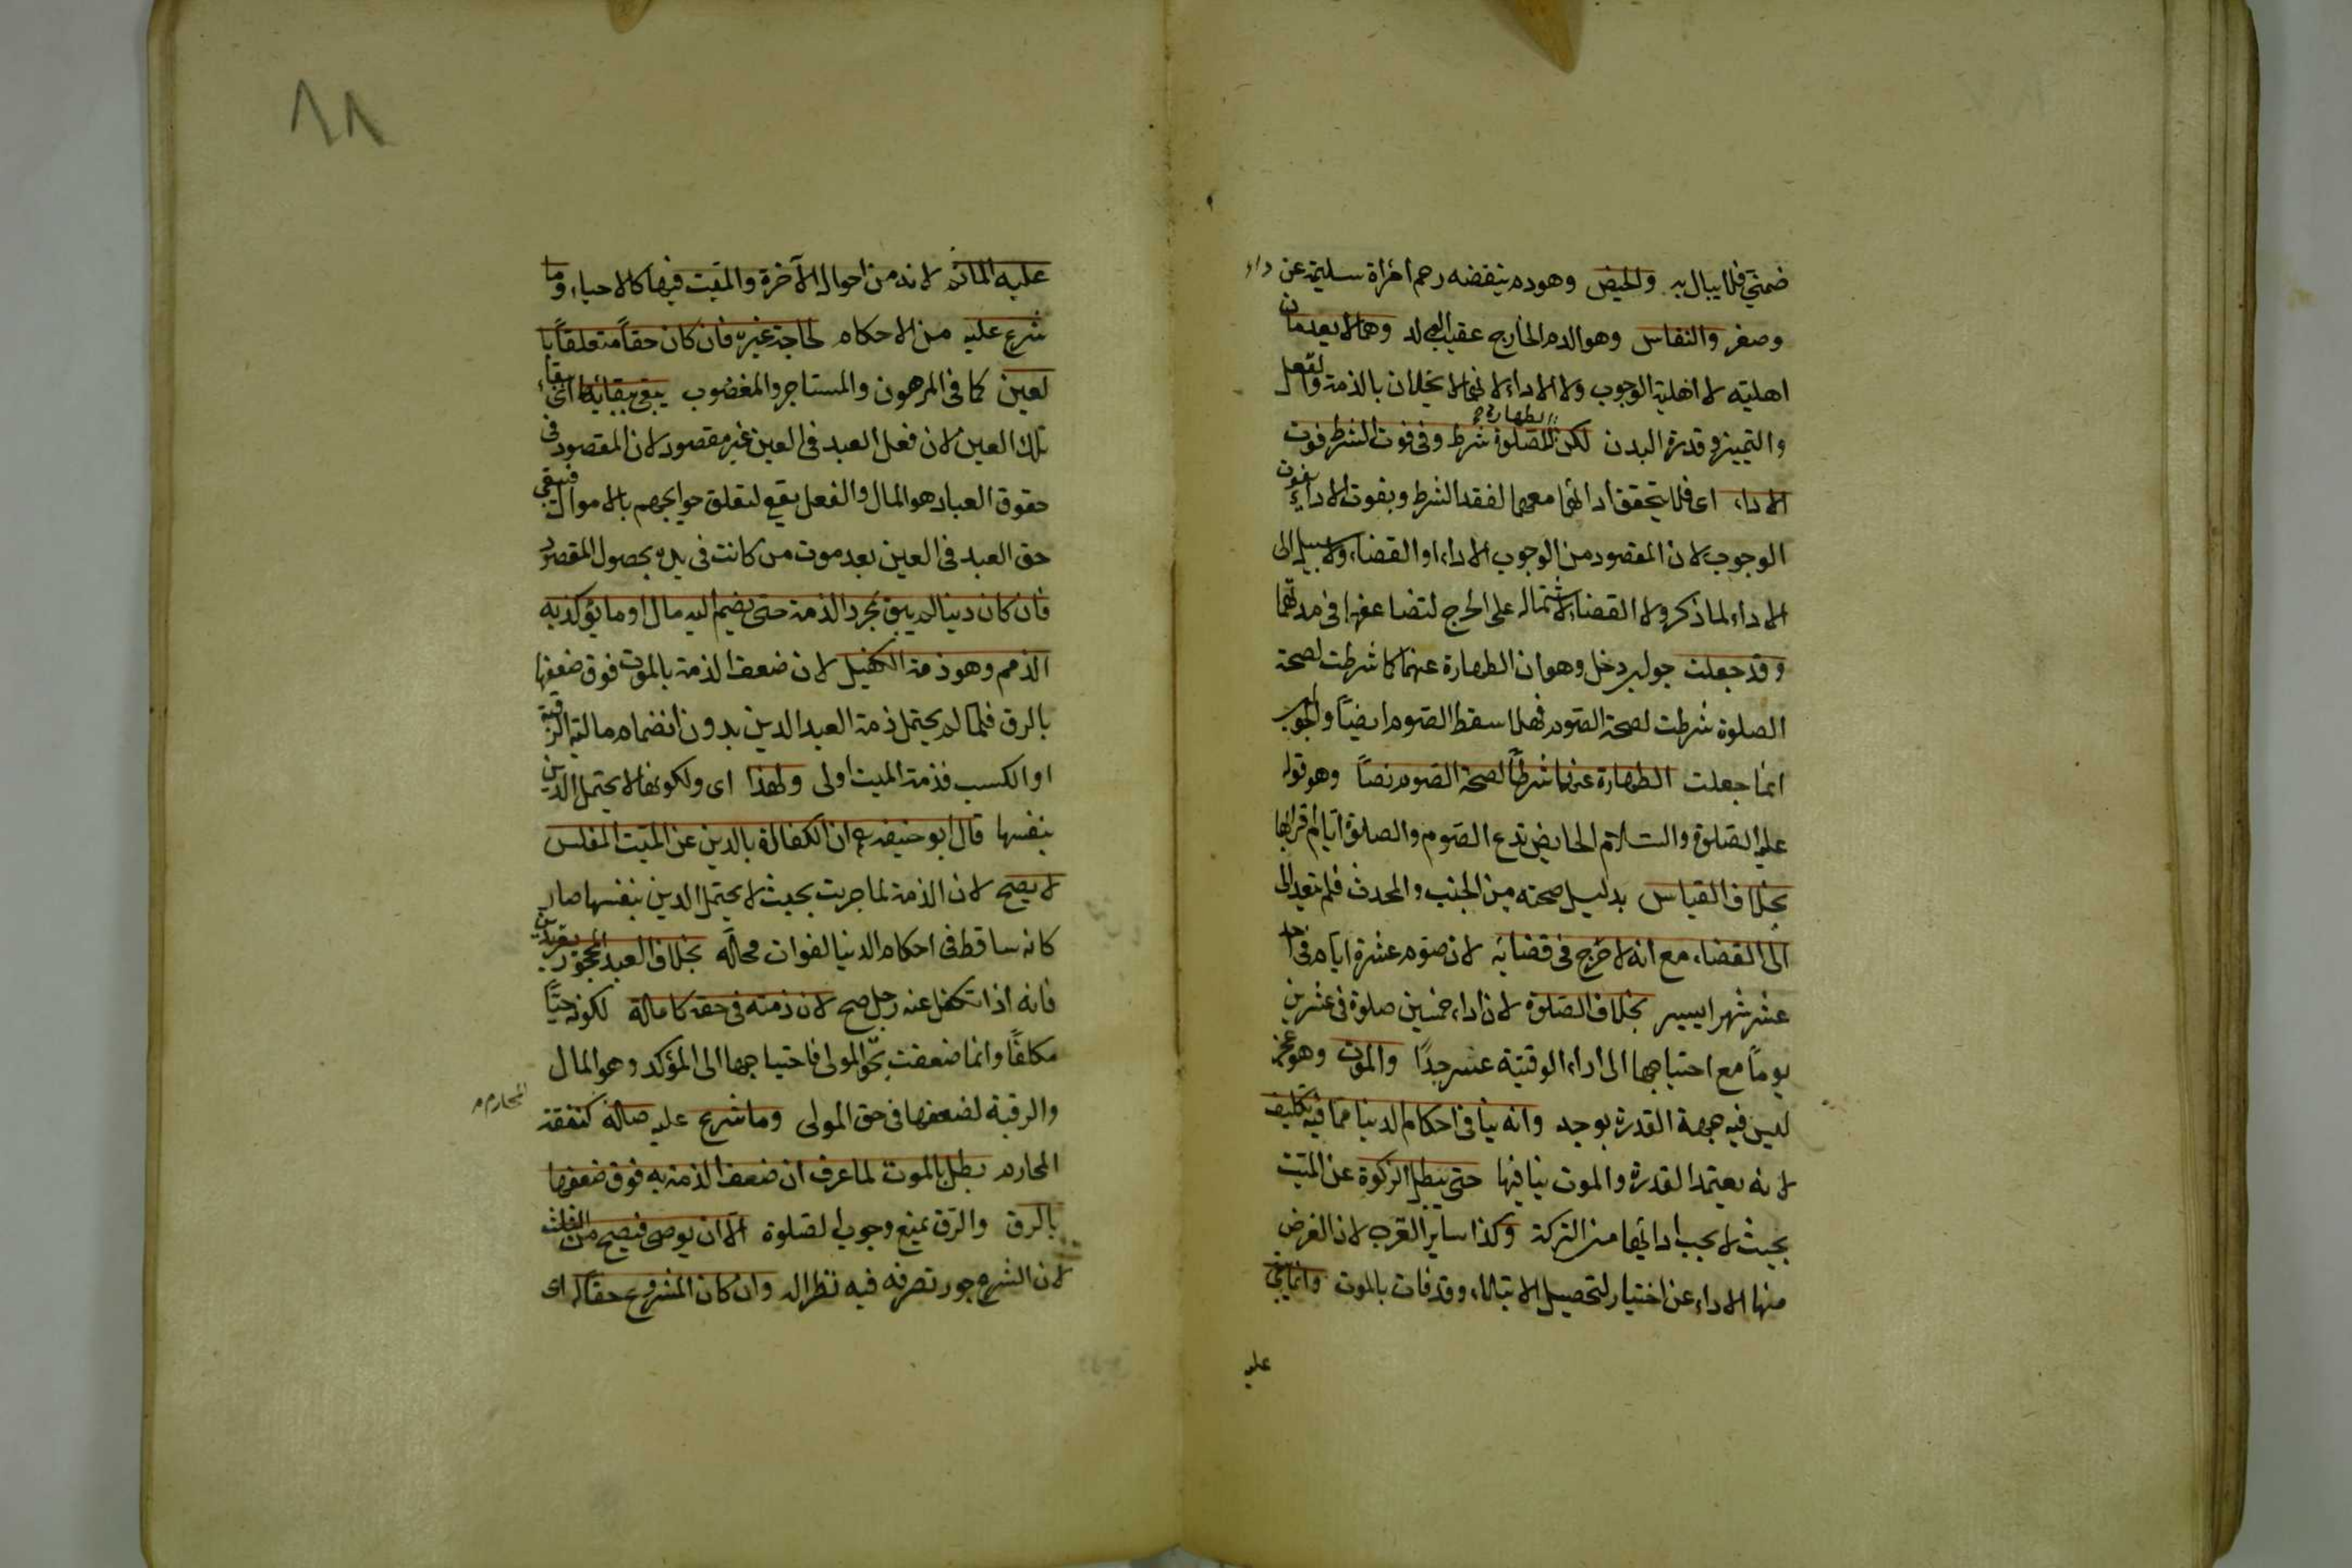 ضمني فلا يبال به والحيض وهو دم ينقضه رحم امرأة سليمة عن داء
وصغر والنفاس وهو الدم الخارج عقيب الولد وهما لا يعدمان
اهليته لا اهلية الوجوب ولا الاداء لانهما لا يخلان بالذمة والعقل
والتميز وقدرة البدن لكن الطهارة للصلوة شرط وفى فوت الشرط فوت
الاداء اى فلا يتحقق اداؤها معهما لفقد الشرط وبفوت الاداء يفوت
الوجوب لان المقصود من الوجوب الاداء او القضاء ولا سبيل الى
الاداء لما ذكر ولا القضاء لاشتماله على الحرج لتضاعفها فى مدتهما
وقد جعلت جواب دخل وهو ان الطهارة عنهما كما شرطت لصحة
الصلوة شرطت لصحة الصوم فهلا سقط الصوم ايضاً والجواب
انما جعلت الطهارة عنهما شرطاً لصحة الصوم نصاً وهو قوله
عليه الصلوة والسلام الحايض تدع الصوم والصلوة ايام اقرائها
بخلاف القياس بدليل صحته من الجنب والمحدث فلم يتعد الى
الى القضاء مع انه لا حرج فى قضائه لان صوم عشرة ايام فى احد
عشر شهرا يسير بخلاف الصلوة لان اداء خمسين صلوة فى عشرين
يوماً مع احتياجها الى اداء الوقتية عسر جداً والموت وهو عجز
ليس فيه جهة القدرة بوجه وانه ينافى احكام الدنيا مما فيه تكليف
لانه يعتمد القدرة والموت ينافيها حتى يبطل الزكوة عن الميت
بحيث لا يجب ادائها من التركة وكذا ساير القرب لان الغرض
منها الاداء عن اختيار لتحصيل الابتلاء وقد فات بالموت وانما يبقى
عليه
٨٨
عليه المأثم لانه من احوال الآخرة والميت فيها كالاحياء وما
شرع عليه من الاحكام لحاجة غيره فان كان حقاً متعلقاً با
لعين كما فى المرهون والمستاجر والمغصوب يبقى ببقائه اى بقاء
تلك العين لان فعل العبد فى العين غير مقصود لان المقصود فى
حقوق العباد هو المال والفعل يقع لتعلق حوايجهم بالاموال فيبقى
حق العبد فى العين بعد موت من كانت فى يده بحصول المقصود
فان كان دينا لم يبق بمجرد الذمة حتى يضم اليه مال او ما يؤكد به
الذمم وهو ذمة الكفيل لان ضعف الذمة بالموت فوق ضعفها
بالرق فلما لم يحتمل ذمة العبد الدين بدون انضمام مالية الرقبة
او الكسب فذمة الميت اولى ولهذا اى ولكونها لا يحتمل الدين
بنفسها قال ابو حنيفه رح ان الكفالة بالدين عن الميت المفلس
لا يصح لان الذمة لما خربت بحيث لا يحتمل الدين بنفسها صار
كانه ساقط فى احكام الدنيا لفوات محله بخلاف العبد المحجور يقر بدين
فانه اذا تكفل عنه رجل صح لان ذمته فى حقه كاملة لكونه حيّاً
مكلفاً وانما ضعفت بحق المولى فاحتياجها الى المؤكد وهو المال
والرقبة لضعفها فى حق المولى وما شرع عليه صلة كنفقة المحارم
المحارم بطل بالموت لما عرف ان ضعف الذمة به فوق ضعفها
بالرق والرق يمنع وجوب الصلوة الا ان يوصى فيصح من الثلث
لان الشرع جوز تصرفه فيه نظرا له وان كان المشروع حقا له اى